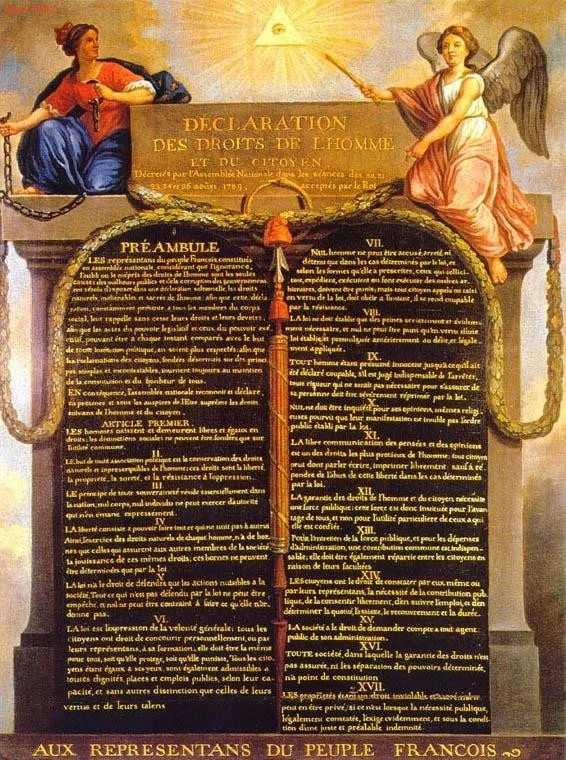 DÉCLARATION
DES DROITS DE L'HOMME
ET DU CITOYEN,
Décretés par l'Assemblée Nationale dans les séances des 20, 21
23, 24 et 26 aoûst 1789, acceptés par le Roi
PRÉAMBULE
LES représentans du peuple François, constitués
en assemblée nationale, considérant que l'ignorance,
l'oubli ou le mépris des droits de l'homme sont les seules
causes des malheurs publics et de la corruption des gouvernemens
ont résolu d'exposer dans une déclaration solemnelle, les droits
naturels, inaliénables et sacrés de l'homme; afin que cette décla
ration, constamment présente a tous les membres du corps
social, leur rappelle sans cesse leurs droits et leurs devoirs;
afin que les actes du pouvoir legislatif et ceux du pouvoir exé
cutif, pouvant être a chaque instant comparés avec le but
de toute institution politique, en soient plus respectés; afin que
les réclamations des citoyens, fondées désormais sur des princi
pes simples et incontestables, tournent toujours au maintien
de la constitution et du bonheur de tous.
EN conséquence, l'assemblée nationale reconnoit et déclare,
en presence et sous les auspices de l'Etre suprême les droits
suivans de l'homme et du citoyen.
ARTICLE PREMIER.
LES hommes naissent et demeurent libres et égaux en
droits; les distinctions sociales ne peuvent être fondées que sur
l'utilité commune.
II.
LE but de toute association politique est la conservation des droits
naturels et imprescriptibles de l'homme; ces droits sont la liberté,
la propriété, la sureté, et la résistance à l'oppression.
III.
LE principe de toute souveraineté réside essentiellement dans
la nation, nul corps, nul individu ne peut exercer d'autorité
qui n'en émane expressément.
IV.
LA liberté consiste a pouvoir faire tout ce qui ne nuit pas à autrui
Ainsi, l'exercice des droits naturels de chaque homme, n'a de bor
nes que celles qui assurent aux autres membres de la société
la jouissance de ces mêmes droits; ces bornes ne peuvent
être déterminées que par la loi
V.
LA loi n'a le droit de défendre que les actions nuisibles à la
société. Tout ce qui n'est pas défendu par la loi ne peut être
empêché, et nul ne peut être contraint à faire ce qu'elle n'or
donne pas.
VI.
LA loi est l'expression de la volonté générale; tous les
citoyens ont droit de concourir personnellement, ou par
leurs représentans, à sa formation; elle doit être la même
pour tous, soit qu'elle protege, soit qu'elle punisse. Tous les cito
yens étant égaux à ses yeux, sont également admissibles à
toutes dignités, places et emplois publics, selon leur ca
pacité, et sans autres distinction que celles de leurs
vertus et de leurs talens
VII.
NUL homme ne peut être accusé, arreté, ni
détenu que dans les cas déterminés par la loi, et
selon les formes qu'elle a prescrites, ceux qui sollici
tent, expédient, exécutent ou font exécuter des ordres ar
bitraires, doivent être punis; mais tout citoyen appelé ou saisi
en vertu de la loi, doit obéir a l'instant, il se rend coupable
par la résistance.
VIII.
LA loi ne doit établir que des peines strictement et évidem
ment nécessaire, et nul ne peut être puni qu'en vertu d'une
loi établie et promulguée antérieurement au délit, et légale
ment appliquée.
IX.
TOUT homme étant présumé innocent jusqu'a ce qu'il ait
été déclaré coupable, s'il est jugé indispensable de l'arrêter,
toute rigueur qui ne serait pas nécessaire pour s'assurer de
sa personne doit être sévèrement réprimée par la loi.
X.
NUL ne doit être inquiété pour ses opinions, mêmes religi
euses pourvu que leur manifestation ne trouble pas l'ordre
public établi par la loi.
XI.
LA libre communication des pensées et des opinions
est un des droits les plus precieux de l'homme; tout citoyen
peut donc parler écrire, imprimer librement: sauf à ré
pondre de l'abus de cette liberté dans les cas déterminés
par la loi.
XII.
LA garantie des droits de l'homme et du citoyen nécessite
une force publique; cette force est donc instituée pour l'avan
tage de tous, et non pour l'utilité particuliere de ceux a qui
elle est confiée.
XIII.
POUR l'entretien de la force publique, et pour les dépenses
d'administration, une contribution commune est indispen
sable; elle doit être également répartie entre les citoyens en
raison de leurs facultées
XIV.
LES citoyens ont le droit de constater par eux même ou
par leurs représentans, la nécessité de la contribution pub
lique, de la consentir librement, d'en suivre l'emploi, et d'en
déterminer la quotité, l'assiette, le recouvrement et la durée.
XV.
LA société a le droit de demander compte a tout agent
public de son administration.
XVI.
TOUTE société, dans laquelle la garantie des droits n'est
pas assurée, ni les séparation des pouvoirs déterminée,
n'a point de constitution
XVII.
LES propriétés étant un droit inviolable et sacré, nul ne
peut en être privé, si ce n'est lorsque la nécessité publique,
légalement constatée, l'exige evidemment, et sous la condi
tion d'une juste et préalable indemnité.
AUX REPRESENTANS DU PEUPLE FRANCOIS